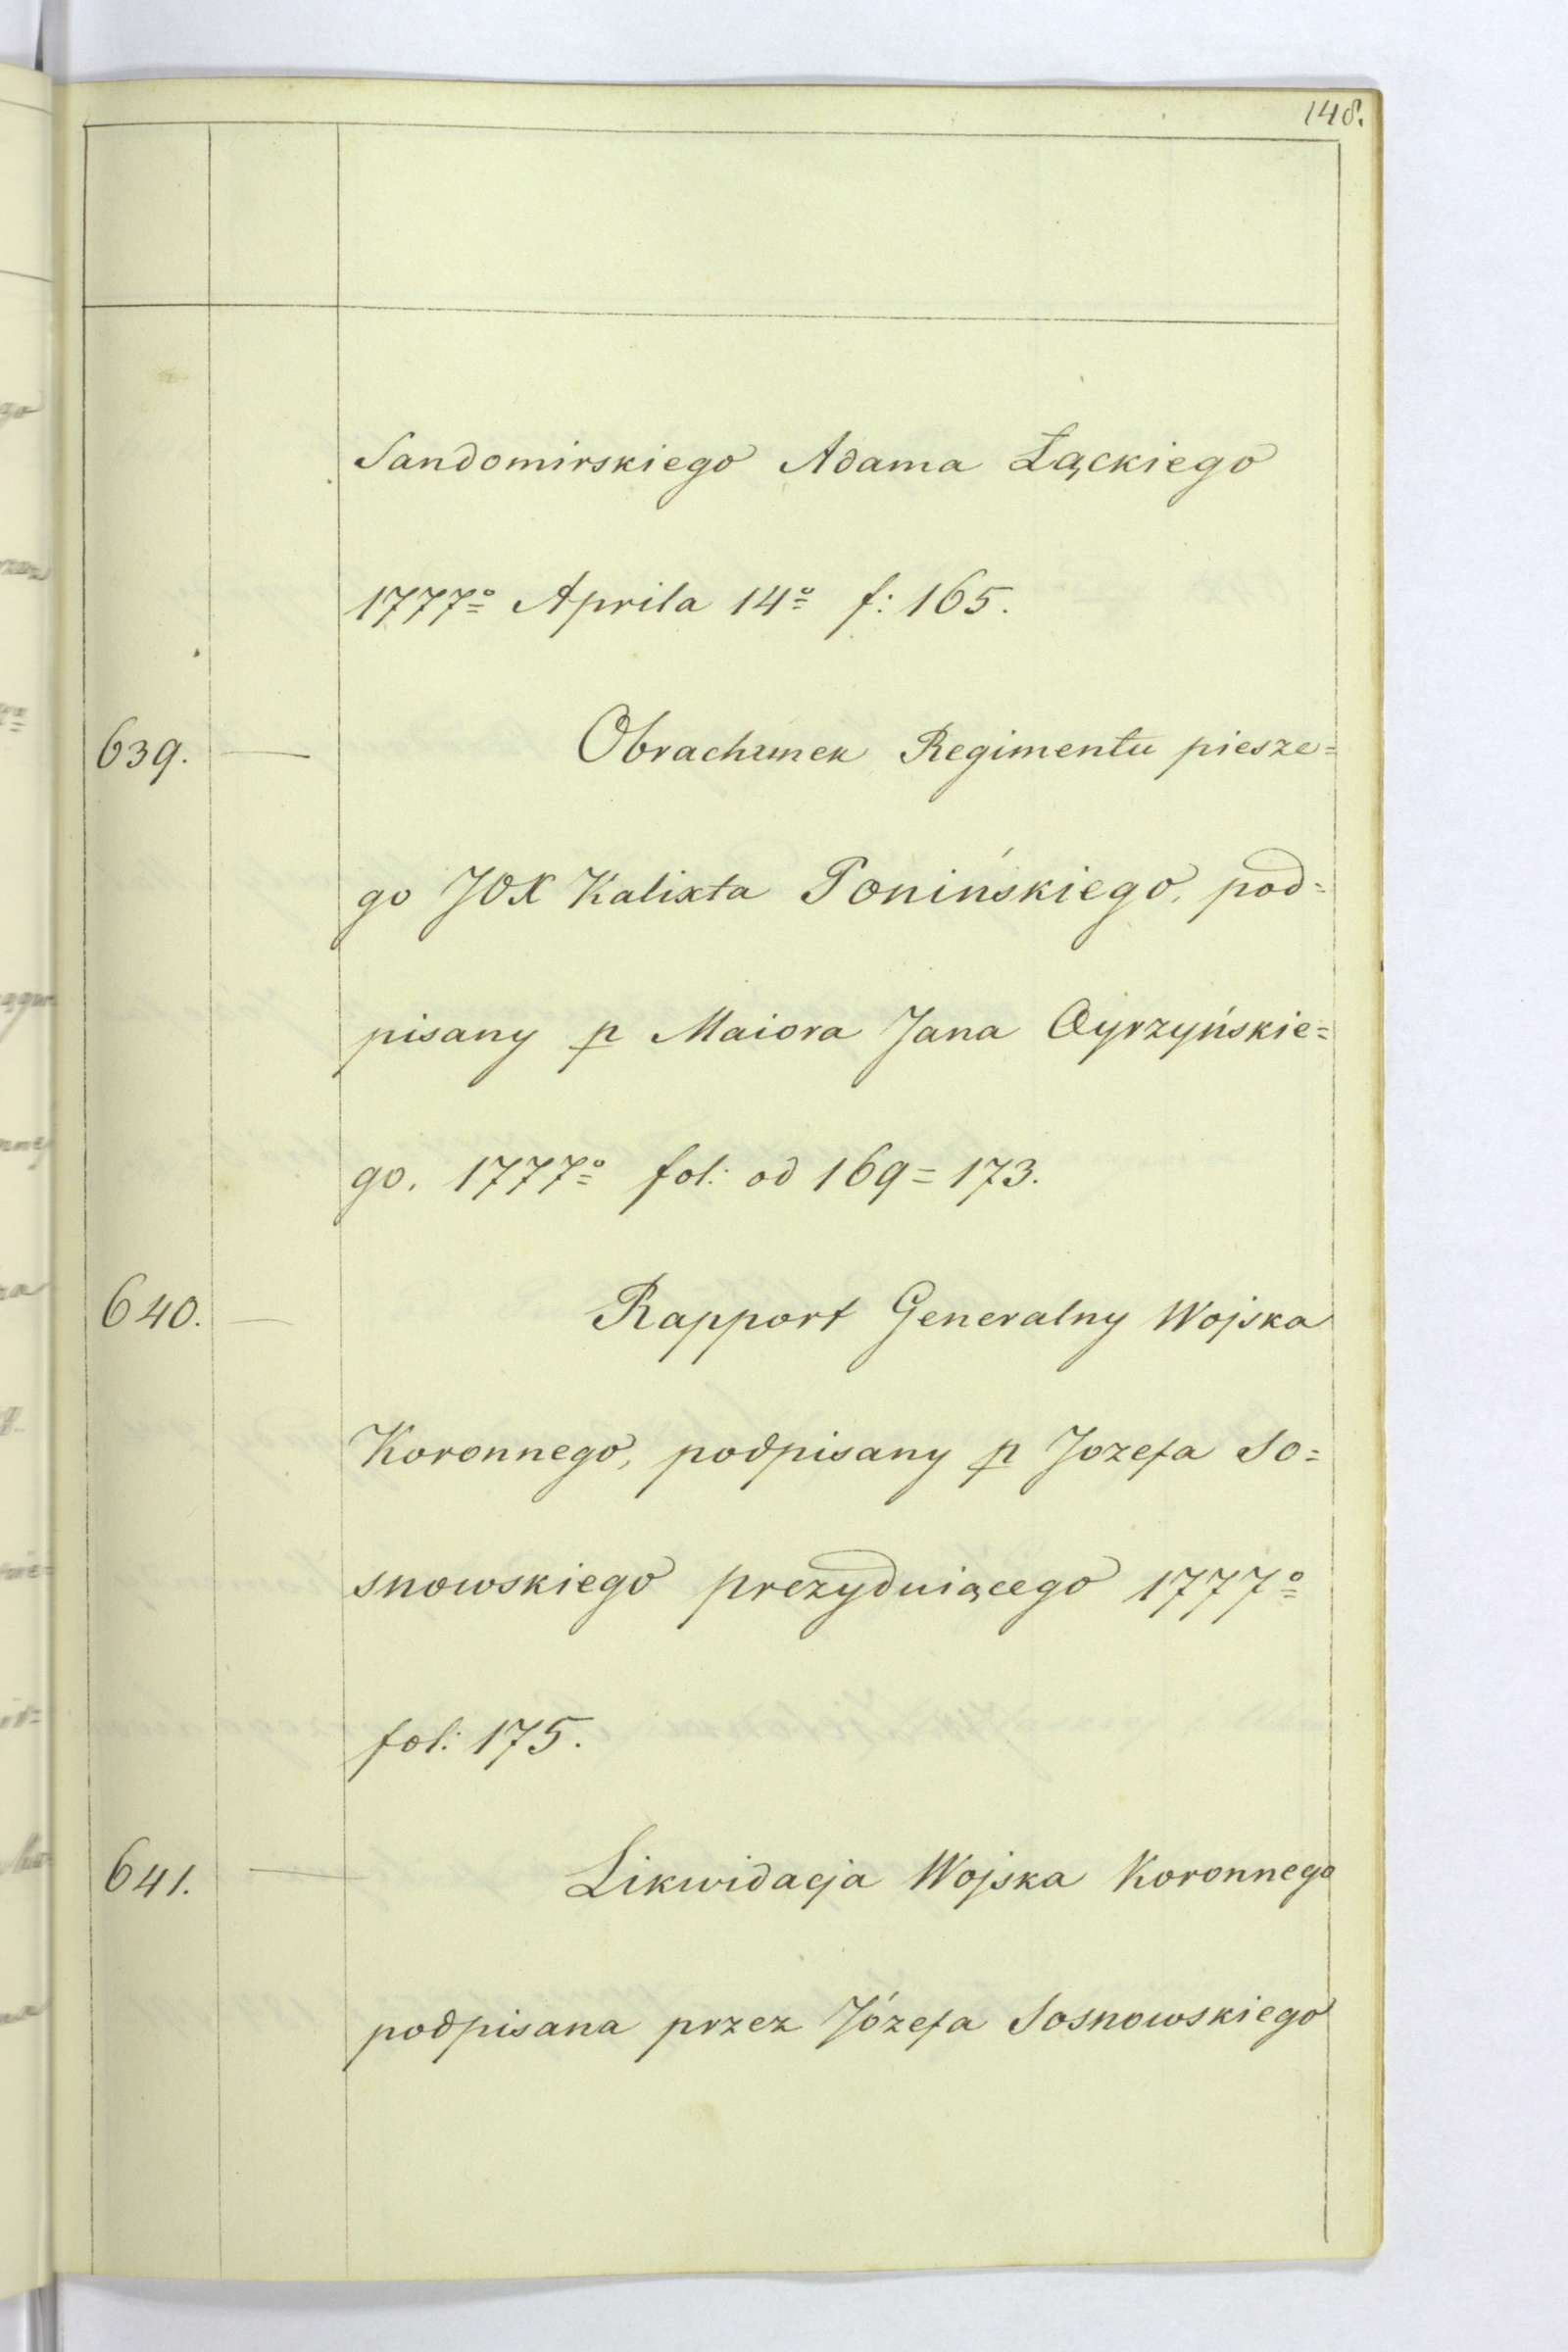 148.
Sandomirskiego Adama Łąckiego
1777º Aprila 14º f: 165.
639. — Obrachunek Regimentu piesze=
go JOX Kalixta Ponińskiego, pod=
pisany p Maiora Jana
go. 1777º fol: od 169 = 173.
640. — Rapport Generalny Wojska
Koronnego, podpisany p Jozefa So=
snowskiego prezyduiącego 1777º
fol: 175.
641. — Likwidacja Wojska Koronnego
podpisana przez Józefa Sosnowskiego